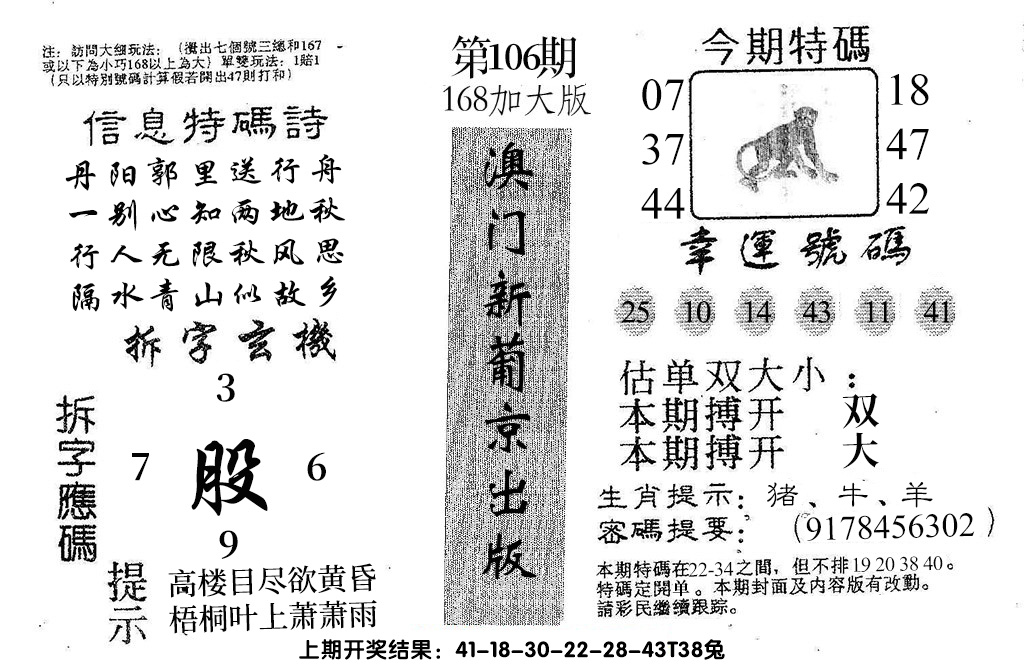 注：訪問大细玩法：（攪出七個號三總和167
或以下為小巧168以上為大）單雙玩法：1賠1
（只以特別號碼計算假若開出47則打和）
信息特碼詩
丹阳郭里送行舟
一别心知两地秋
行人无限秋风思
隔水青山似故乡
拆字玄機
3
拆字應碼
7 股 6
9
提示
高楼目尽欲黄昏
梧桐叶上萧萧雨
第106期
168加大版
澳门新葡京出版
今期特碼
07 18
37 47
44 42
幸運號碼
25 10 14 43 11 41
估单双大小：
本期搏开 双
本期搏开 大
生肖提示：猪、牛、羊
密碼提要：（9178456302）
本期特碼在22-34之間，但不排19 20 38 40。
特碼定開单。本期封面及内容版有改動。
請彩民繼續跟踪。
上期开奖结果：41-18-30-22-28-43T38兔